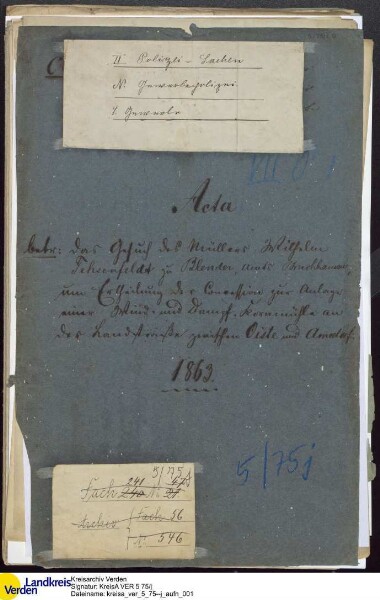 II Polizei-Sachen
N. Gewerbepolizei
1. Gewerbe
Acta
betr: das Gesuch des Müllers Wilhelm
zu Blender, Amts
um Ertheilung der Concession zur Anlage
einer Wind- und Dampf-Kornmühle an
der Landstraße zwischen Oiste und
1863.
5/75j
5/75j
241
Fach 240 N. 
Fach 86
N 546
Landkreis
Verden
Kreisarchiv Verden
Signatur: KreisA VER 5 75/j
Dateiname: kreisa_ver_5_75--j_aufn_001